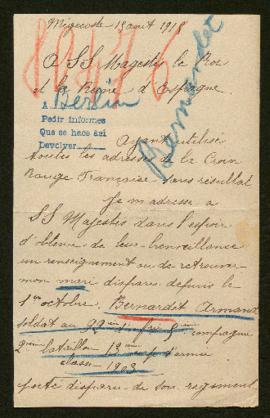 août 1915
A S S Magestés le Roi
et la Reine d'Espagne.
Berlin
A
Pedir informes
Que se hace asi
Devolver
Ayant utilisé
toutes les adresses de la Croix
Rouge Française sans résultat
Je m'adresse a
S S Majestés dans l'espoir
d'obtenir de leur bienveillance
un renseignement ou de retrouver
mon mari disparu depuis le
1er octobre. Bernardit Armand
soldat au 99ème 5ème compagnie
2ème bataillon corps d'armée
classe 1903
porté disparu de son régiment